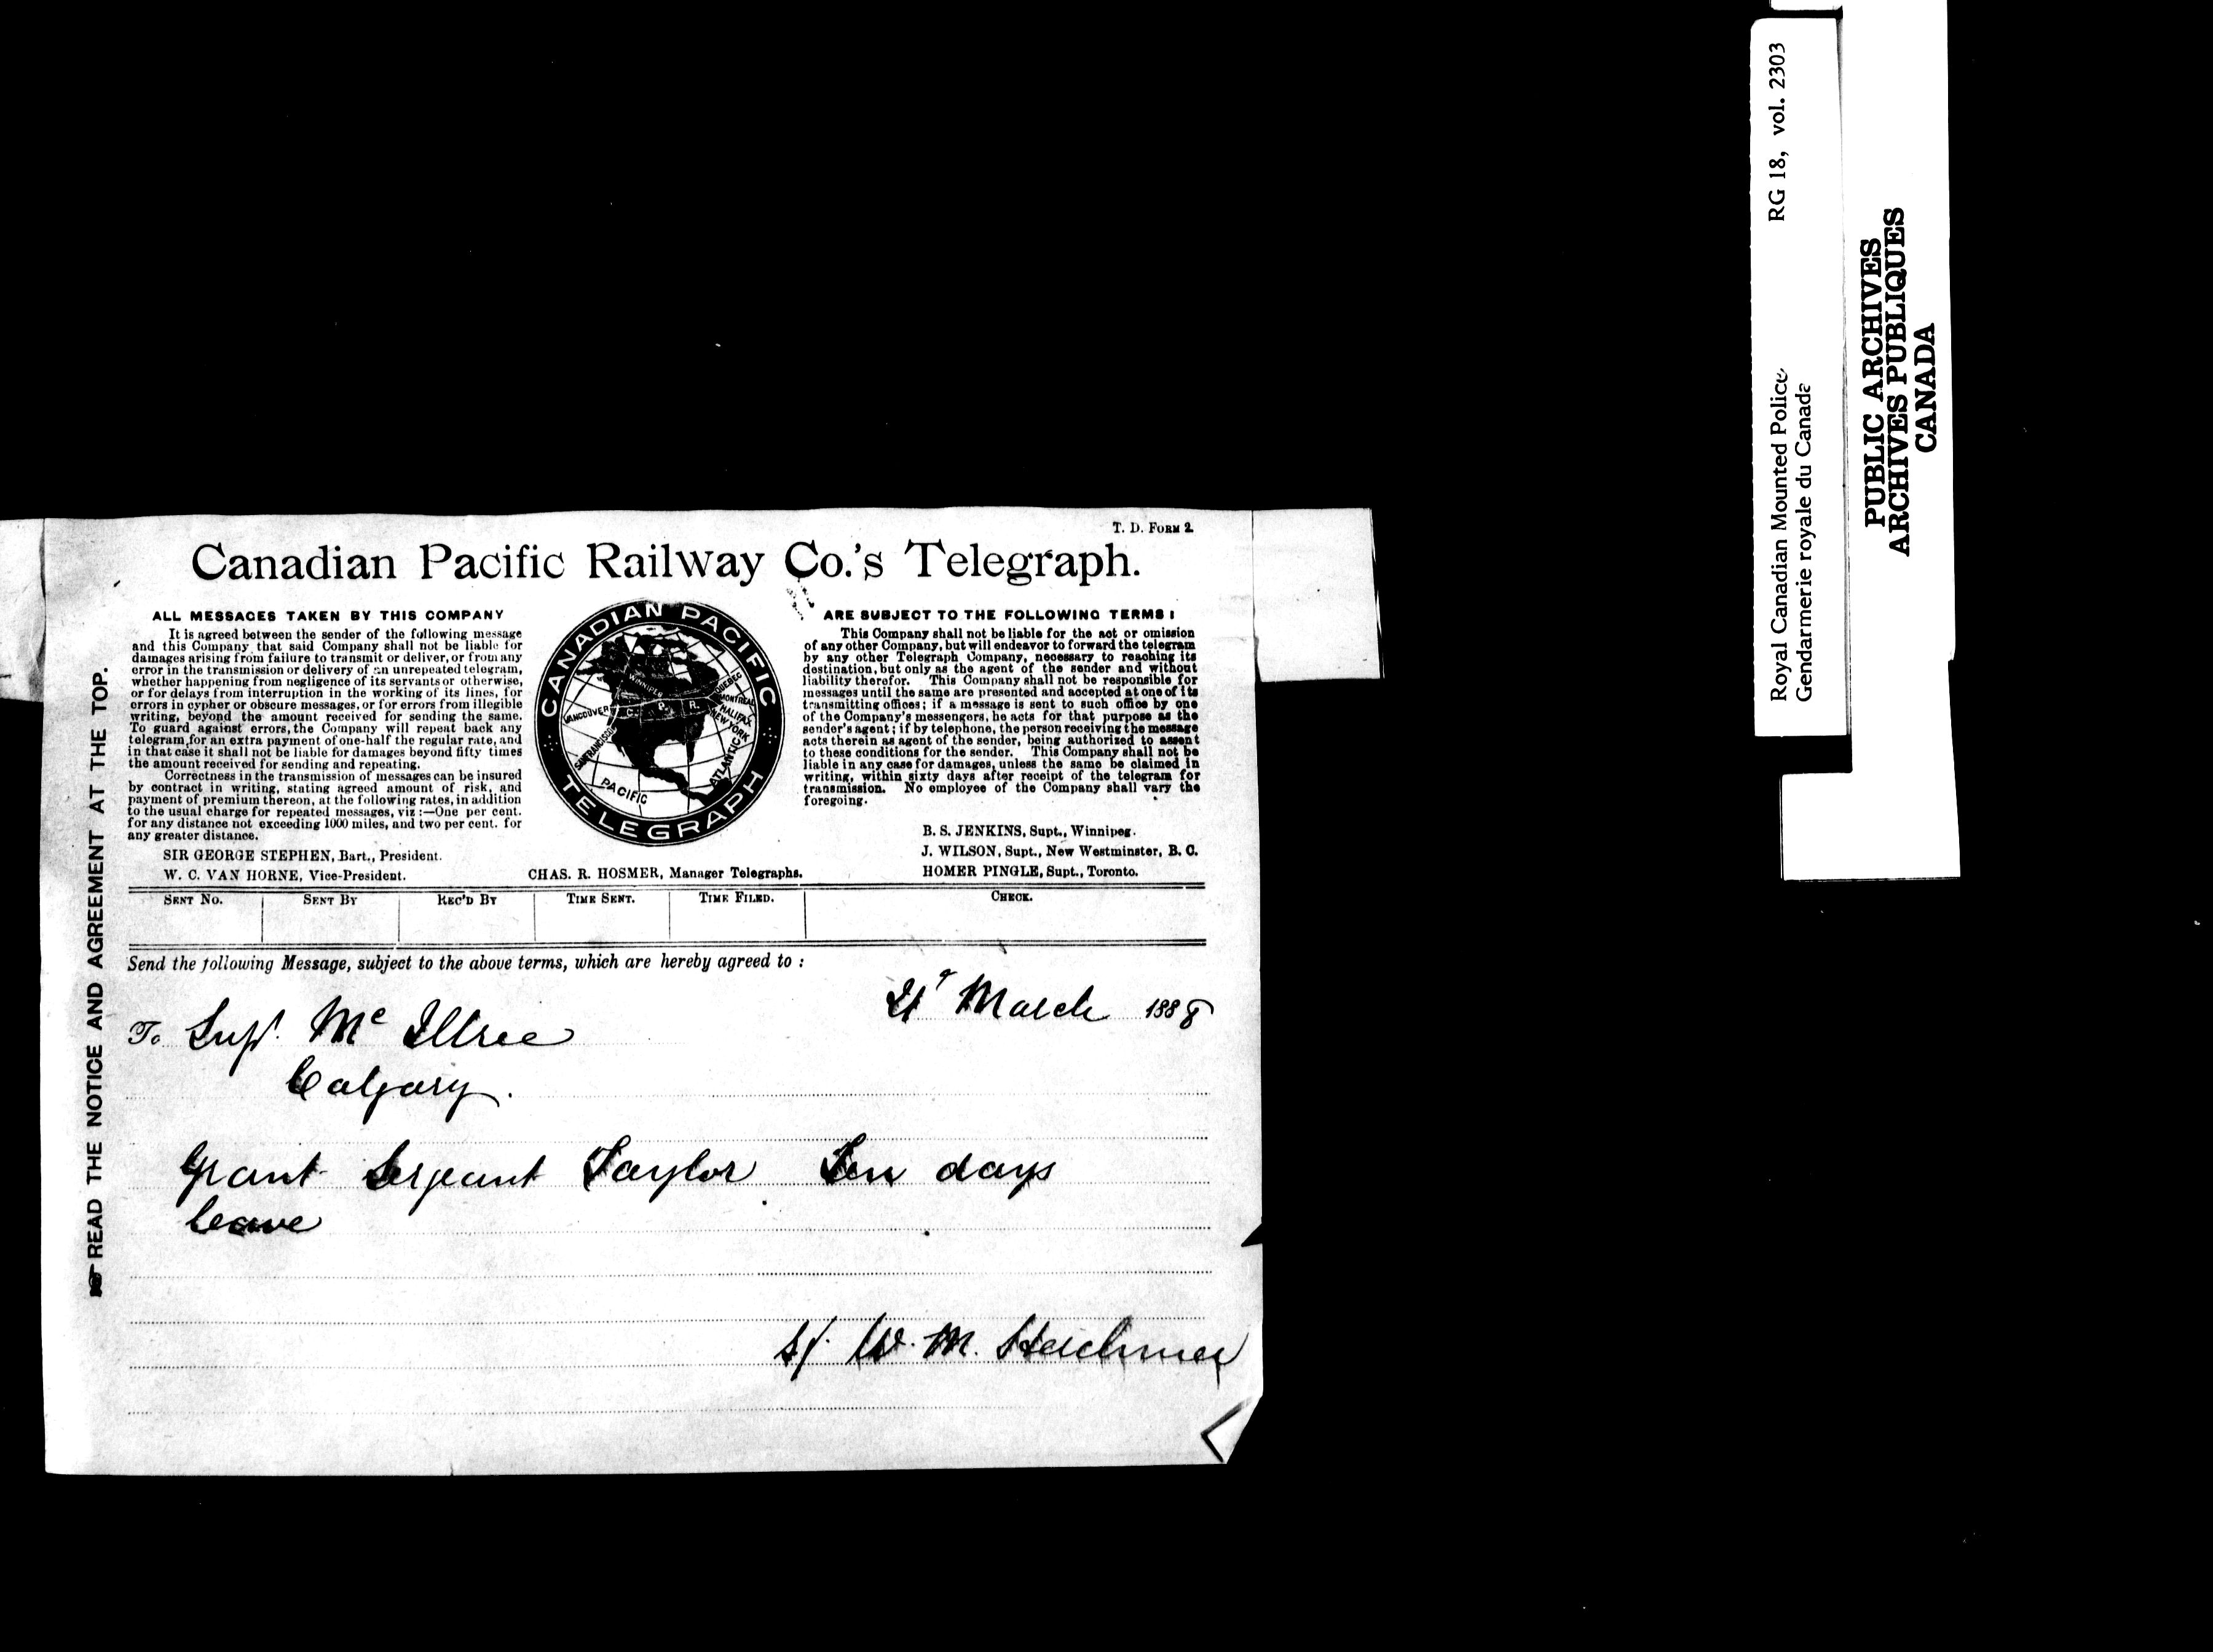 T. D. FORM 2.
Canadian Pacific Railway Co.'s Telegraph.
ALL MESSAGES TAKEN BY THIS COMPANY
It is agreed between the sender of the following message
and this Company that said Company shall not be liable for
damages arising from failure to transmit or deliver, or from any
error in the transmission or delivery of an unrepeated telegram,
whether happening from negligence of its servants or otherwise,
or for delays from interruption in the working of its lines, for
errors in cypher or obscure messages, or for errors from illegible
writing, beyond the amount received for sending the same.
To guard against errors, the Company will repeat back any
telegram for an extra payment of one-half the regular rate, and
in that case it shall not be liable for damages beyond fifty times
the amount received for sending and repeating.
Correctness in the transmission of messages can be insured
by contract in writing, stating agreed amount of risk, and
payment of premium thereon, at the following rates, in addition
to the usual charge for repeated messages, viz :—One per cent.
for any distance not exceeding 1000 miles, and two per cent. for
any greater distance.
SIR GEORGE STEPHEN, Bart., President.
W. C. VAN HORNE, Vice-President.
CANADIAN PACIFIC
TELEGRAPH
WINNIPEG
QUEBEC
MONTREAL
HALIFAX
NEW YORK
VANCOUVER
C. P. R.
SAN FRANCISCO
ATLANTIC
PACIFIC
CHAS. R. HOSMER, Manager Telegraphs.
ARE SUBJECT TO THE FOLLOWING TERMS :
This Company shall not be liable for the act or omission
of any other Company, but will endeavor to forward the telegram
by any other Telegraph Company, necessary to reaching its
destination, but only as the agent of the sender and without
liability therefor. This Company shall not be responsible for
messages until the same are presented and accepted at one of its
transmitting offices; if a message is sent to such office by one
of the Company's messengers, he acts for that purpose as the
sender's agent; if by telephone, the person receiving the message
acts therein as agent of the sender, being authorized to assent
to these conditions for the sender. This Company shall not be
liable in any case for damages, unless the same be claimed in
writing, within sixty days after receipt of the telegram for
transmission. No employee of the Company shall vary the
foregoing.
B. S. JENKINS, Supt., Winnipeg.
J. WILSON, Supt., New Westminster, B. C.
HOMER PINGLE, Supt., Toronto.
SENT NO. SENT BY REC'D BY TIME SENT. TIME FILED. CHECK.
Send the following Message, subject to the above terms, which are hereby agreed to :
21st March 1888
To Supt. Mc Illree
Calgary.
Grant Sergeant Taylor Ten days
leave
S/. W. M. Herchmer
READ THE NOTICE AND AGREEMENT AT THE TOP.
Royal Canadian Mounted Police RG 18, vol. 2303
Gendarmerie royale du Canada
PUBLIC ARCHIVES
ARCHIVES PUBLIQUES
CANADA